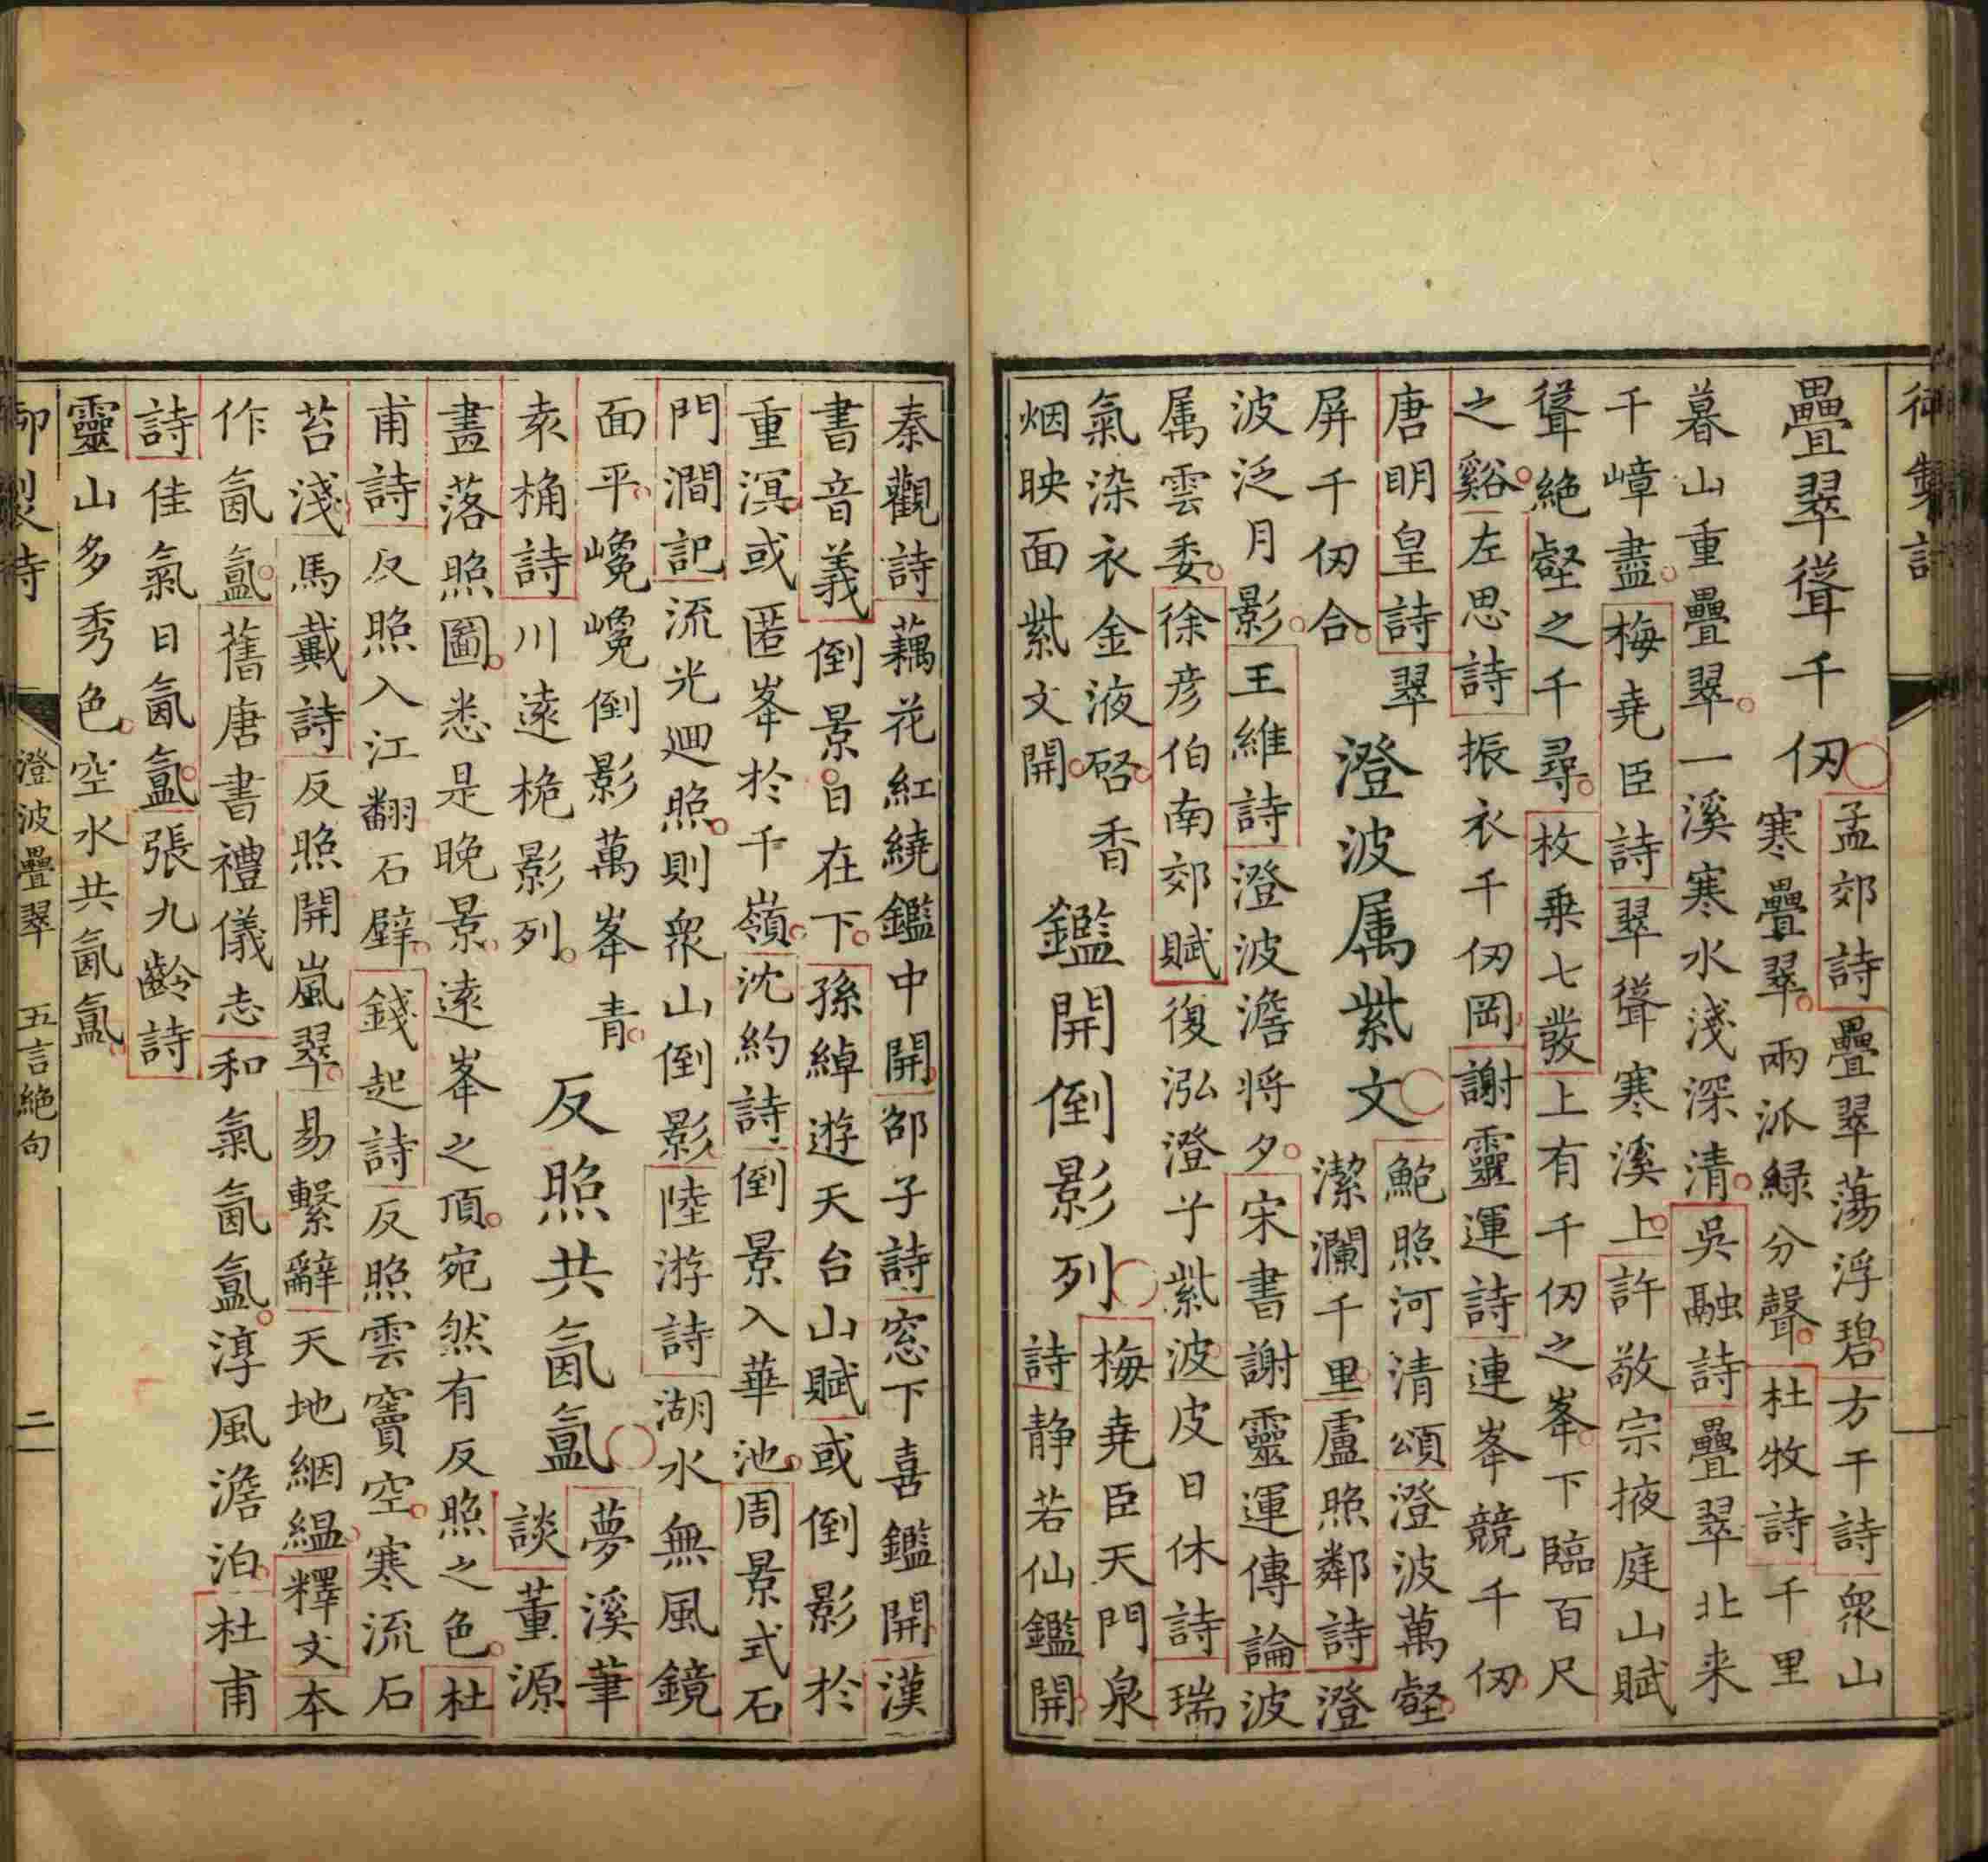 御製詩
疊翠聳千仞
孟郊詩疊翠蕩浮碧方干詩衆山
寒疊翠兩派緑分聲杜牧詩千里
暮山重疊翠一溪寒水淺深清吳融詩疊翠北来
千嶂盡梅堯臣詩翠聳寒溪上許敬宗掖庭山賦
聳絶壑之千尋枚乗七發上有千仞之峯下臨百尺
之谿左思詩振衣千仞岡謝靈運詩連峯競千仞
唐明皇詩翠
屏千仞合
澄波属紫文
鮑照河清頌澄波萬壑
潔瀾千里盧照鄰詩澄
波泛月影王維詩澄波澹将夕宋書謝靈運傳論波
属雲委徐彦伯南郊賦復泓澄于紫波皮日休詩瑞
氣染衣金液啓香
烟映面紫文開
鑑開倒影列
梅堯臣天門泉
詩静若仙鑑開
秦觀詩藕花紅繞鑑中開邵子詩窓下喜鑑開漢
書音義倒景日在下孫綽遊天台山賦或倒影於
重溟或匿峯於千嶺沈約詩倒景入華池周景式石
門澗記流光迴照則衆山倒影陸游詩湖水無風鏡
面平巉巉倒影萬峯青
袁桷詩川遠桅影列
反照共氤氲
夢溪筆
談董源
畫落照圖悉是晚景遠峯之頂宛然有反照之色杜
甫詩反照入江翻石壁錢起詩反照雲竇空寒流石
苔淺馬戴詩反照開嵐翠易繫辭天地絪緼釋文本
作氤氲舊唐書禮儀志和氣氤氲淳風澹泊杜甫
詩佳氣日氤氲張九齡詩
靈山多秀色空水共氤氲
御製詩 澄波疊翠 五言絶句 二